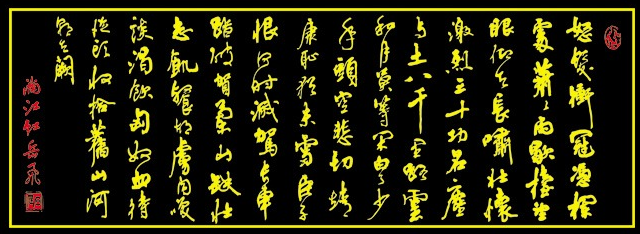 怒髮衝冠憑欄
處蕭々雨歇擡望
眼仰天長嘯壯懷
激烈三十功名塵
与土八千里路雲
和月莫等閑白了少
年頭空悲切靖
康恥猶未雪臣子
恨何時滅駕長車
踏破賀蘭山缺壯
志飢餐胡虜肉笑
談渴飲匈奴血待
從頭收拾舊山河
朝天闕
滿江紅岳飛